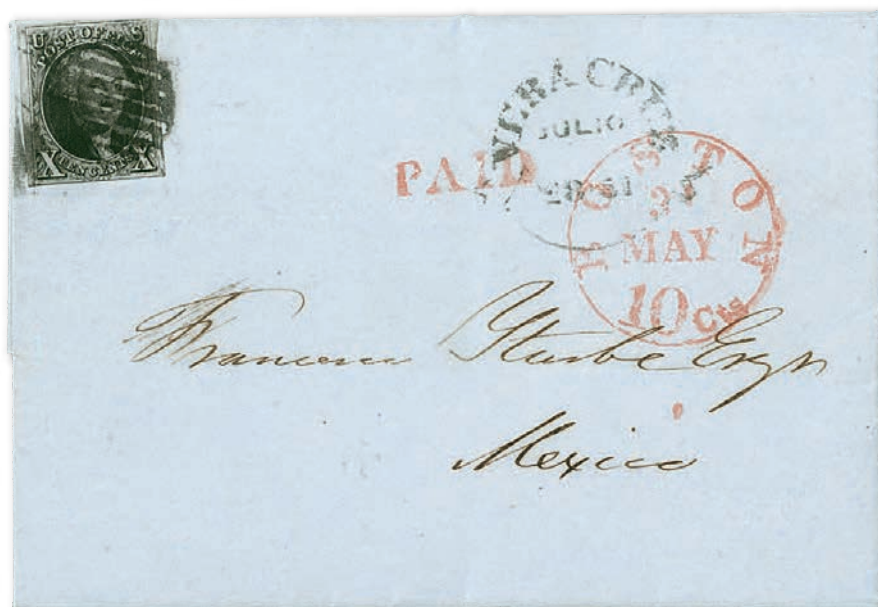 U S
POST OFFICE
X TEN CENTS X
VERA CRUZ
JULIO
PAID
BOSTON
MAY
10 Cts
Francisco Yturbe Esqr
Mexico